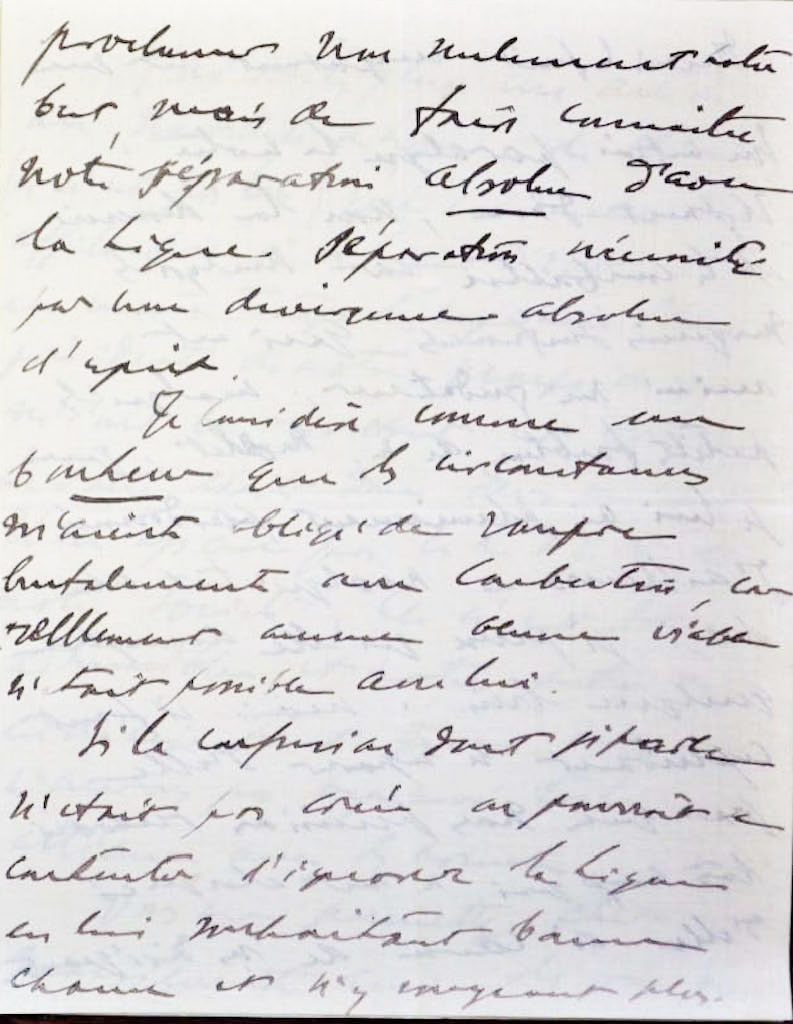 proclamer non seulement notre
but, mais de faire connaitre
notre séparation absolue d'avec
la Ligue. Séparation nécessitée
par une divergence absolue
d'esprit.
Je considère comme un
bonheur que les circonstances
m'aient obligé de rompre
brutalement avec Coubertin, car
réellement aucune oeuvre viable
n'était possible avec lui.
Si la confusion dont je parle
n'était pas créée on pourrait se
contenter d'ignorer la Ligue
en lui souhaitant bonne
chance et n'y songeant plus.